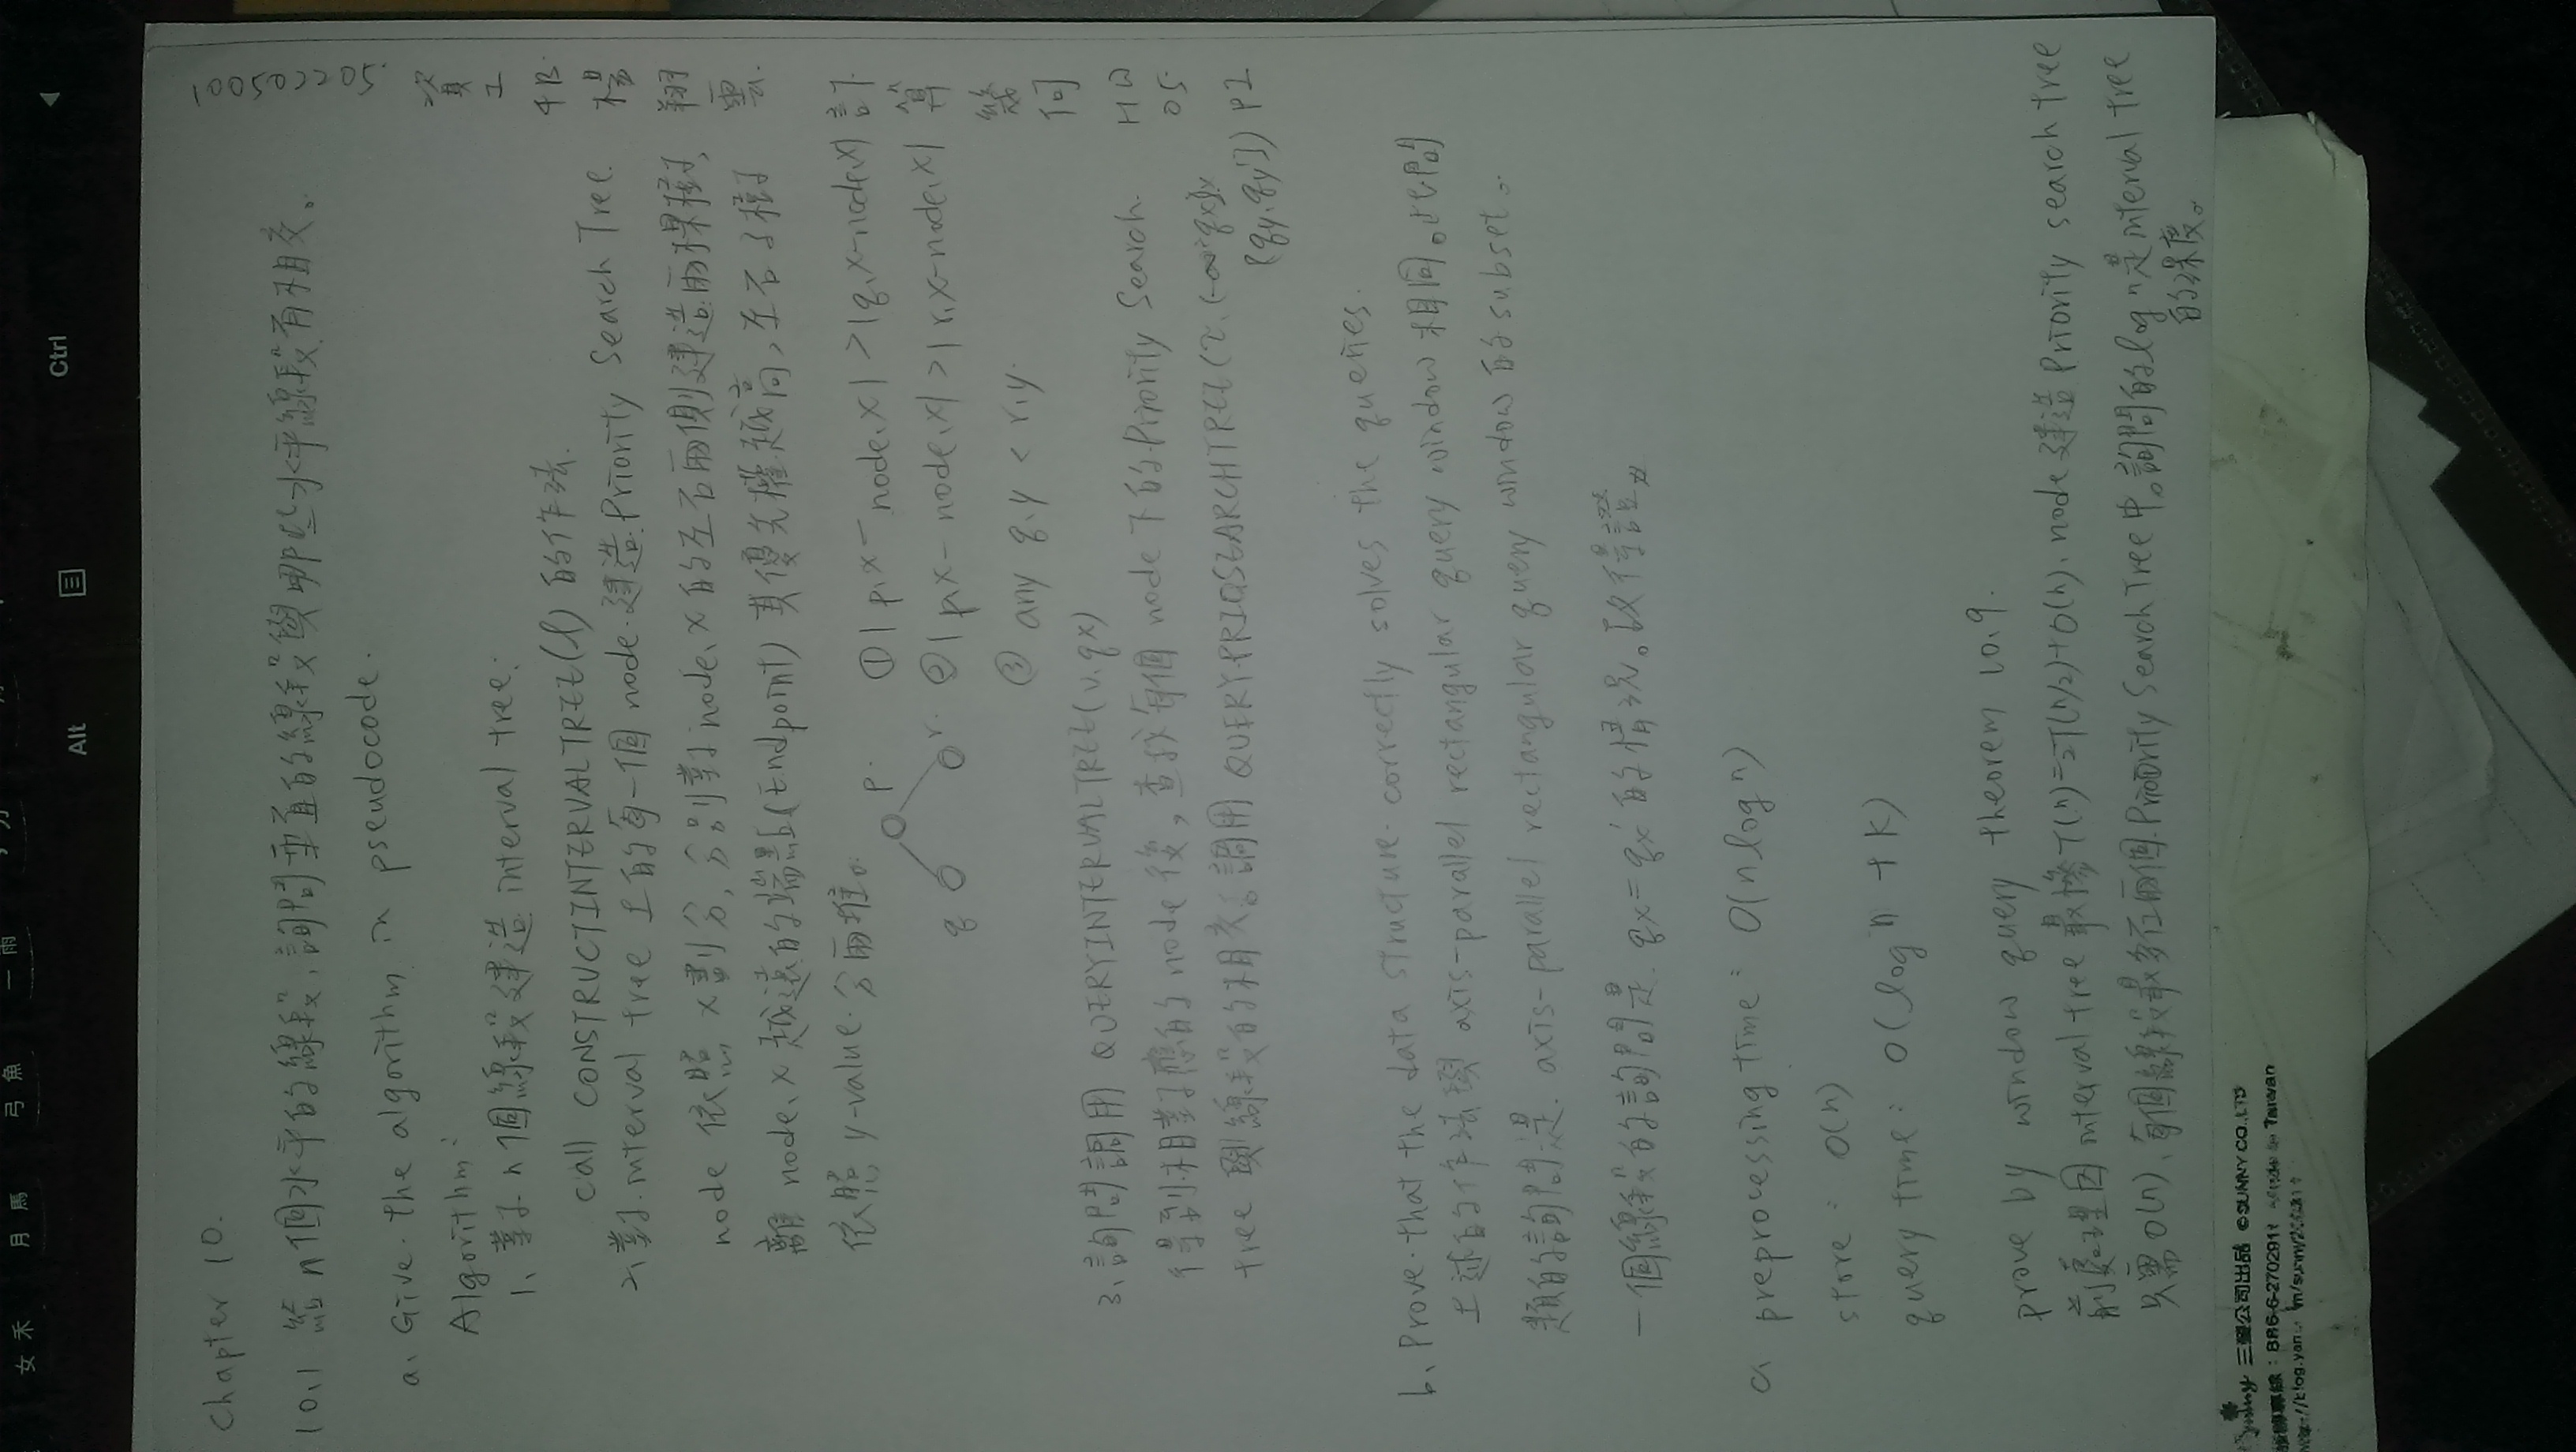 100502205 資工4B 楊翔雲 計算幾何 HW05 P1
Chapter 10.
10.1 給n個水平的線段, 詢問垂直的線段與哪些水平線段有相交。
a. Give the algorithm in pseudocode.
Algorithm:
1. 對於 n 個線段建造 interval tree:
call CONSTRUCTINTERVALTREE(l) 的作法.
2. 對於 interval tree 上的每一個 node 建造 Priority Search Tree.
node 依照 x 劃分, 分別對於 node.x 的左右兩側建造兩棵樹,
離 node.x 越遠的端點(Endpoint)其優先權越高, 左右子樹
依照 y-value 分兩堆。
p. q r.
① |p.x - node.x| > |q.x - node.x|
② |p.x - node.x| > |r.x - node.x|
③ any q.y < r.y.
3. 詢問調用 QUERYINTERVALTREE(v, qx)
得到相對應的 node 後, 查找每個 node 下的 Priority Search.
tree 關線段的相交調用 QUERYPRIOSEARCHTREE(τ, (-∞:qx]x
[qy,qy'])
b. Prove that the data structure correctly solves the queries.
上述的作法跟 axis-parallel rectangular query window 相同。
題目的詢問是 axis-parallel rectangular query window 的 subset。
一個線段的詢問是 qx = qx' 的情況。故得證
c. preprocessing time: O(n log n)
store: O(n)
query time: O(log n + k)
prove by window query theorem 10.9.
前處理因 interval tree 最慘 T(n)=2T(n/2)+O(n), node 建造 Priority search tree
只需 O(n), 每個線段最多在兩個 Priority Search Tree 中。詢問的 log n 是 interval tree
的深度。
Ctrl
Alt
三瑩公司出品 ©SUNNY CO.,LTD
女 禾 月 馬 弓 魚 一 雨